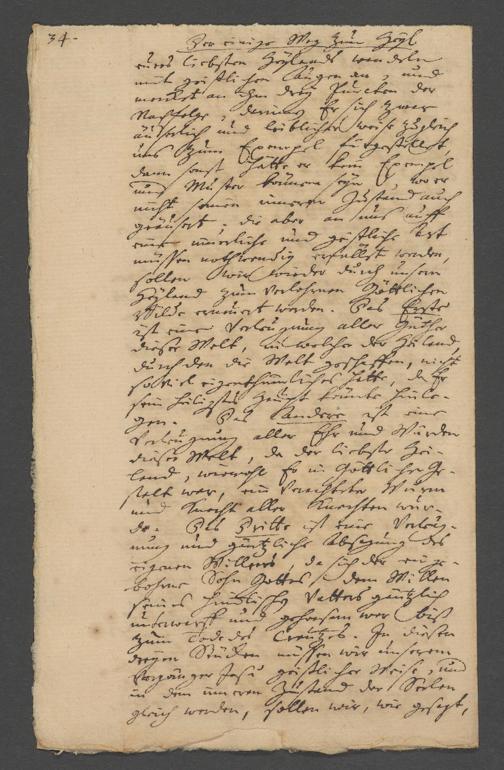 34.
Der einige Weg zum Heyl
eures liebsten Heylands wandeln
mit geistlichen Augen an, und
merket an Ihm drey Puncten der
Nachfolge, darinn Er sich zwar
äusserlich und leiblicher weise zugleich
uns zum Exempel fürgestellet,
dann sonst hätte er kein Exempel
und Muster können seyn, wo er
nicht seinen inneren Zustand auch
geäusert, die aber an uns auff
eine innerliche und geistliche Art
müssen nothwendig erfüllet werden,
sollen wir wieder durch unsern
Heyland zum verlohrnen Göttlichen
Bilde erneuert werden. Das Erste
ist eine Verleugnung aller Güther
dieser Welt, in welcher der Heiland,
durch den die Welt geschaffen, nicht
so viel eigenthümliches hatte, da Er
sein heiligstes Haupt könnte hinle-
gen. Das Andere ist eine
Verleugnung aller Ehr und Würden
dieser Welt, da der liebste Hei-
land, wiewohl Er in Göttlicher Ge-
stalt war, ein Verachteter Wurm
und Knecht aller Knechten wur-
de. Das Dritte ist eine Verleug-
nung und gäntzliche Absagung des
eigenen Willens, da sich der einge-
bohrne Sohn Gottes dem Willen
seines himlischen Vatters gäntzlich
unterwarff und gehorsam war biß
zum Tode des Creutzes. In diesen
dreyen Stücken müssen wir unserem
Vorgänger Jesu geistlicher Weise, und
in dem inneren Zustand der Seelen
gleich werden, sollen wir, wie gesagt,